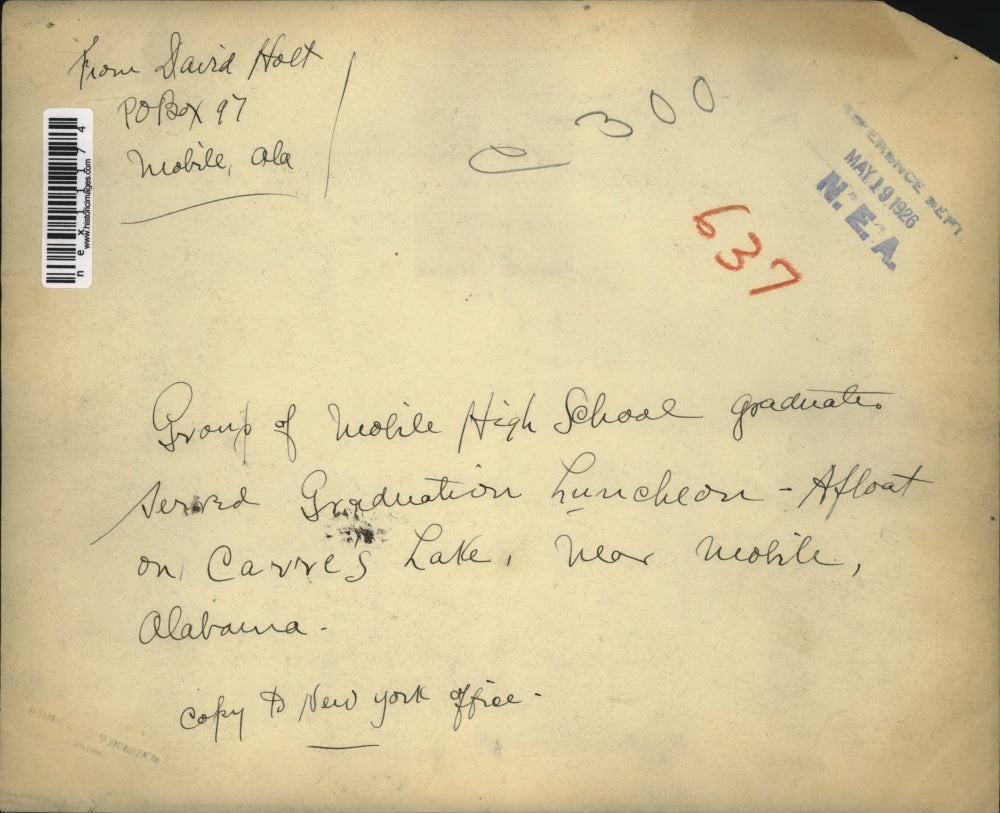 From David Holt
PO Box 97
Mobile, Ala
C 300
637
REFERENCE DEPT
MAY 19 1926
N. E. A.
nex11174
www.historicimages.com
Group of Mobile High School graduates
served Graduation Luncheon - Afloat
on Carre's Lake, near Mobile,
Alabama -
copy to New York Office -